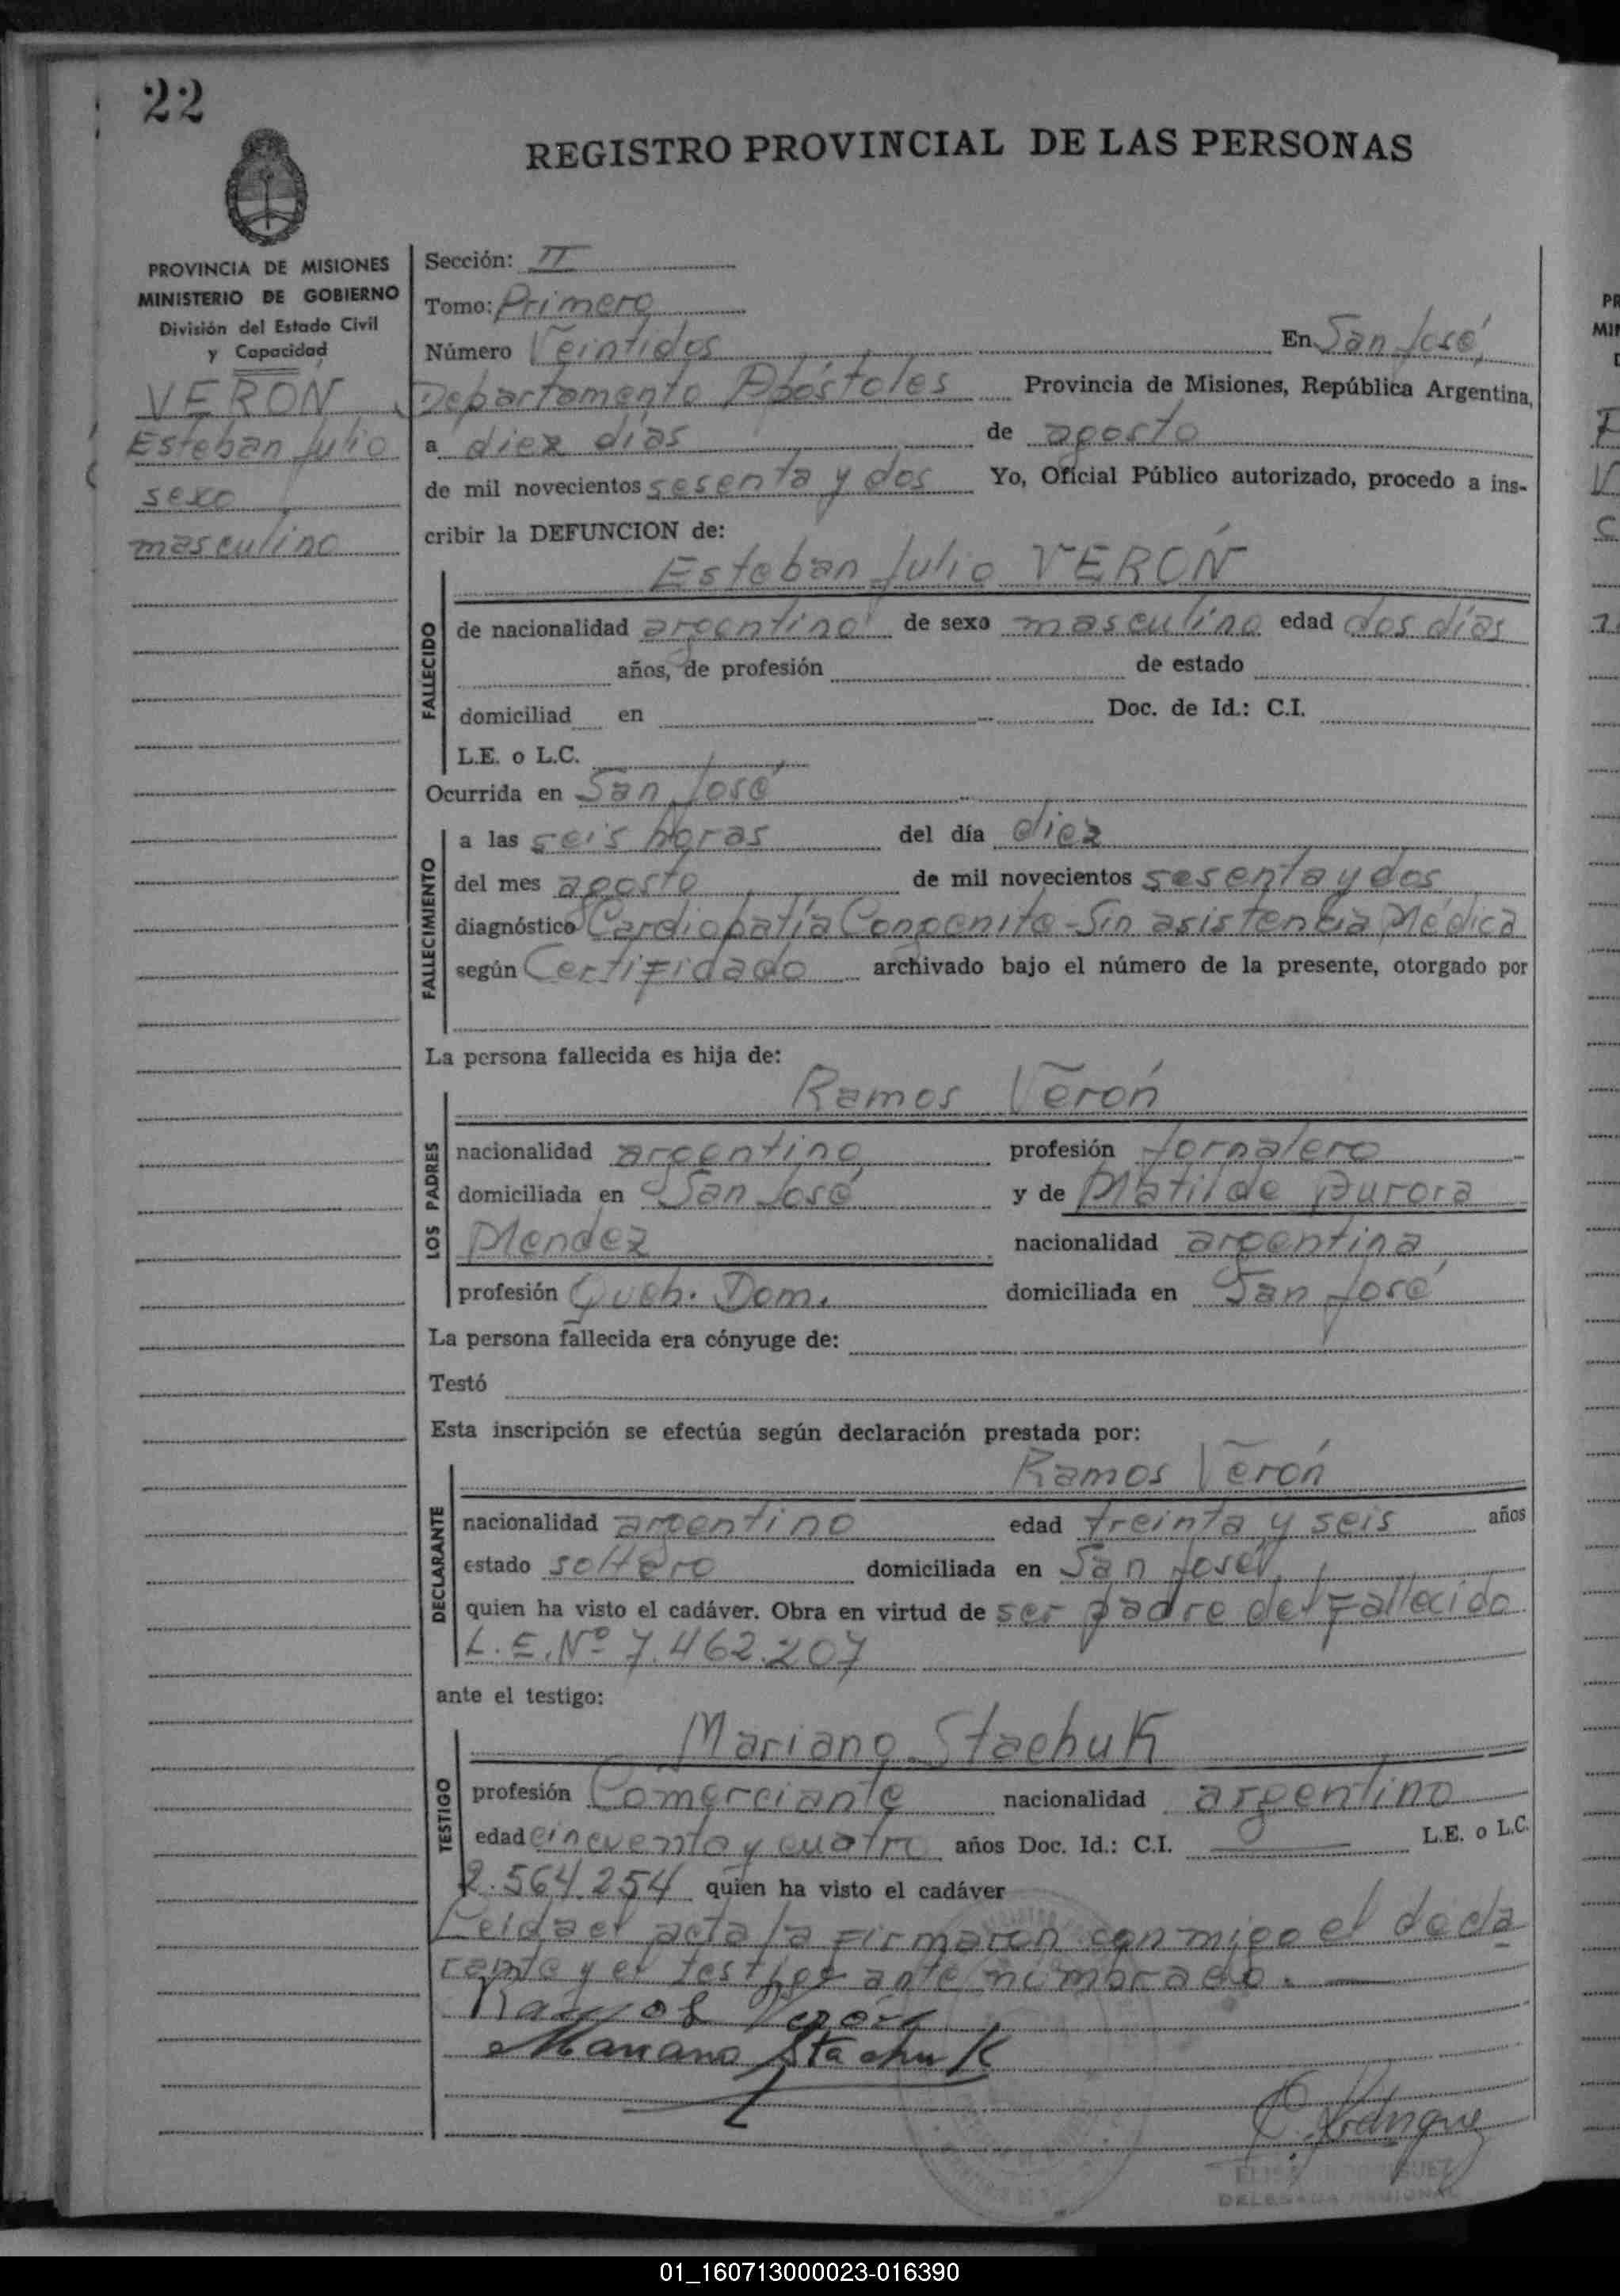 22
REGISTRO PROVINCIAL DE LAS PERSONAS
PROVINCIA DE MISIONES
MINISTERIO DE GOBIERNO
División del Estado Civil
y Capacidad
VERÓN
Esteban Julio
sexo
masculino
Sección: II
Tomo: Primero
Número Veintidos En San José,
Departamento Apóstoles Provincia de Misiones, República Argentina,
a diez días de agosto
de mil novecientos sesenta y dos Yo, Oficial Público autorizado, procedo a ins-
cribir la DEFUNCION de:
Esteban Julio VERÓN
FALLECIDO
de nacionalidad argentino de sexo masculino edad dos días
años, de profesión de estado
domiciliad en Doc. de Id.: C.I.
L.E. o L.C.
Ocurrida en San José
FALLECIMIENTO
a las seis horas del día diez
del mes agosto de mil novecientos sesenta y dos
diagnóstico Cardiopatía Congenita - Sin asistencia Médica
según Certifidado archivado bajo el número de la presente, otorgado por
La persona fallecida es hija de:
Ramos Verón
LOS PADRES
nacionalidad argentino profesión Jornalero
domiciliada en San José y de Matilde Aurora
Mendez nacionalidad argentina
profesión Queh. Dom. domiciliada en San José
La persona fallecida era cónyuge de:
Testó
Esta inscripción se efectúa según declaración prestada por:
Ramos Verón
DECLARANTE
nacionalidad argentino edad treinta y seis años
estado soltero domiciliada en San José,
quien ha visto el cadáver. Obra en virtud de ser padre del Fallecido
L.E. Nº 7.462.207
ante el testigo:
Mariano Stachuk
TESTIGO
profesión Comerciante nacionalidad argentino
edad cincuenta y cuatro años Doc. Id.: C.I. — L.E. o L.C.
2.564.254 quien ha visto el cadáver
Leida el acta la Firmaron conmigo el decla
rante y el testigo ante nombrado. —
Ramos Verón
Mariano Stachuk
DELEGADA REGIONAL
01_160713000023-016390